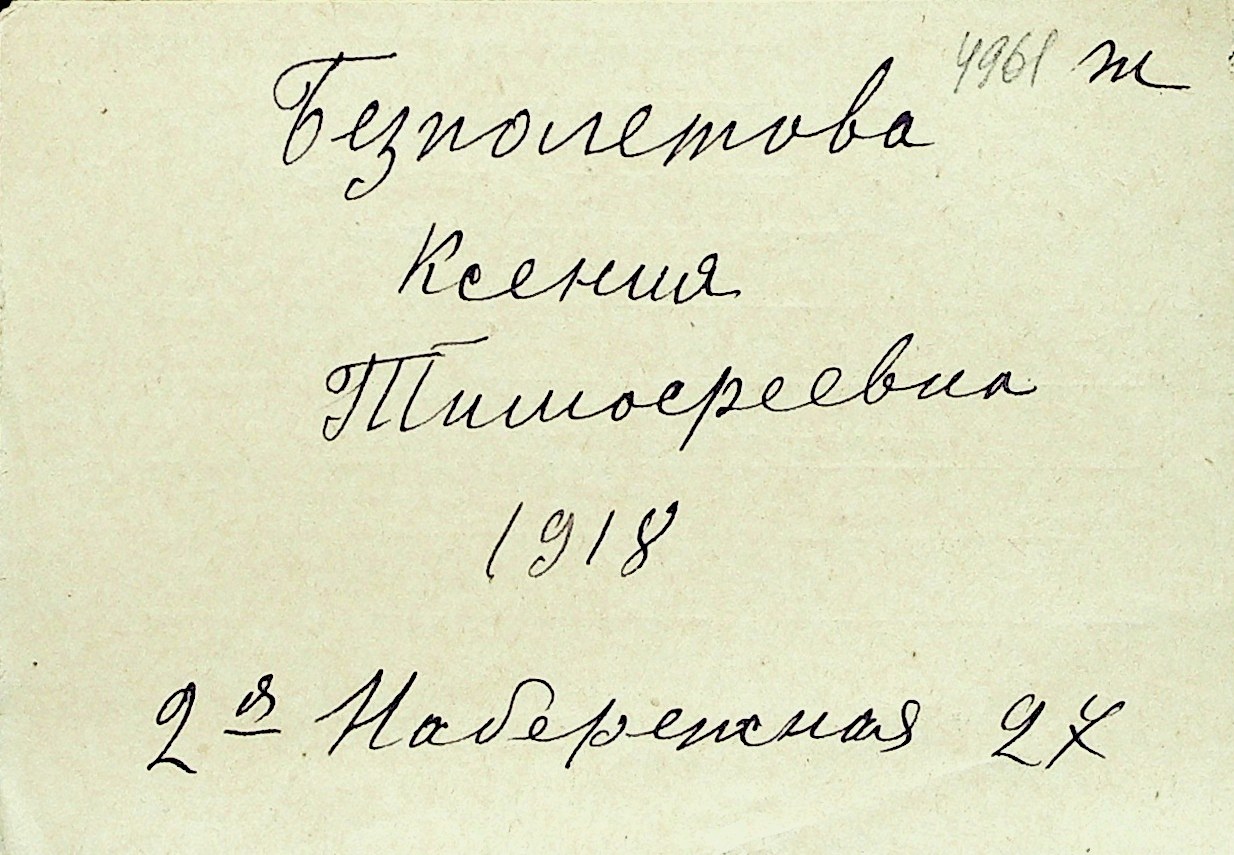 4961 ж
Безполетова
Ксения
Тимофеевна
1918
2я Набережная 27